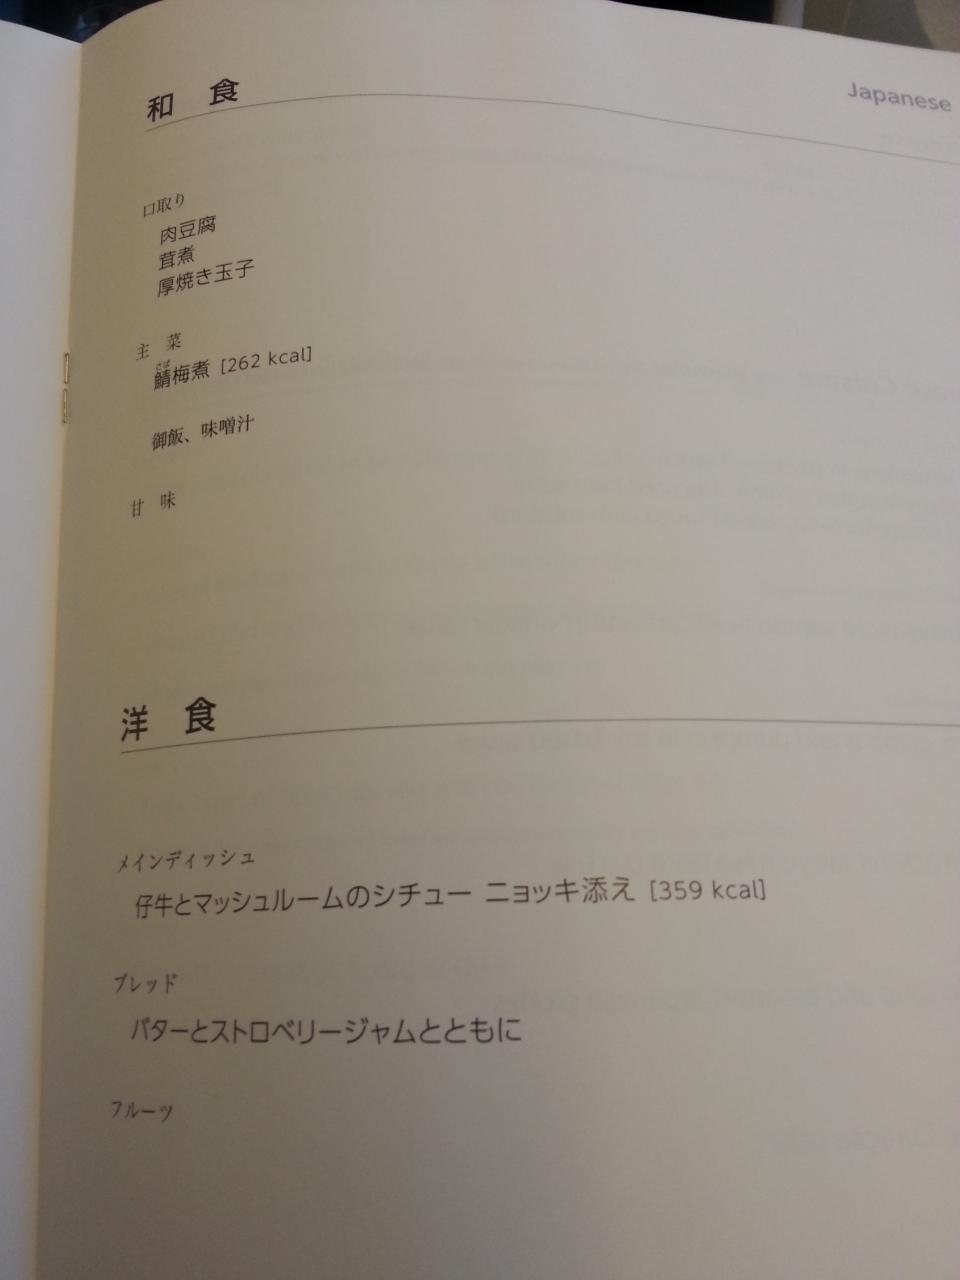 和 食
Japanese
口取り
肉豆腐
茸煮
厚焼き玉子
主 菜
さば
鯖梅煮 [262 kcal]
御飯、味噌汁
甘 味
洋 食
メインディッシュ
仔牛とマッシュルームのシチュー ニョッキ添え [359 kcal]
ブレッド
バターとストロベリージャムとともに
フルーツ